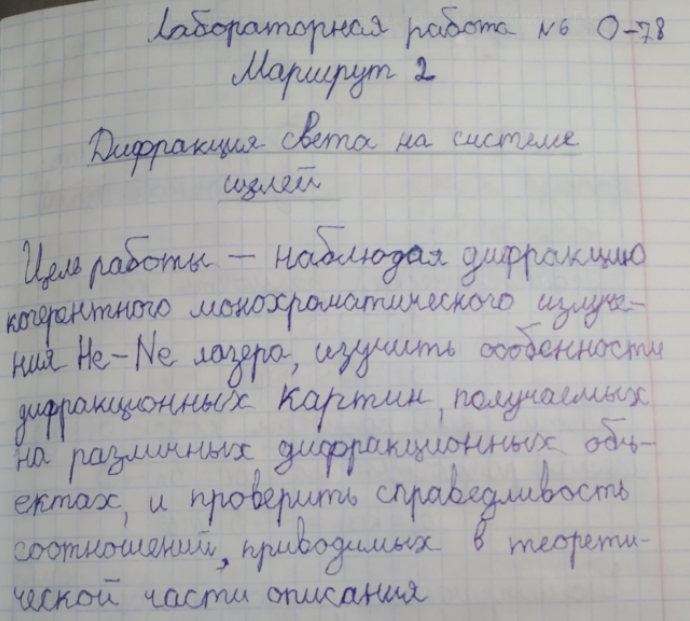 Лабораторная работа №6 О-78
Маршрут 2
Дифракция света на системе
щелей
Цель работы — наблюдая дифракцию
когерентного монохроматического излуче-
ния He-Ne лазера, изучить особенности
дифракционных картин, получаемых
на различных дифракционных объ-
ектах, и проверить справедливость
соотношений, приводимых в теорети-
ческой части описания